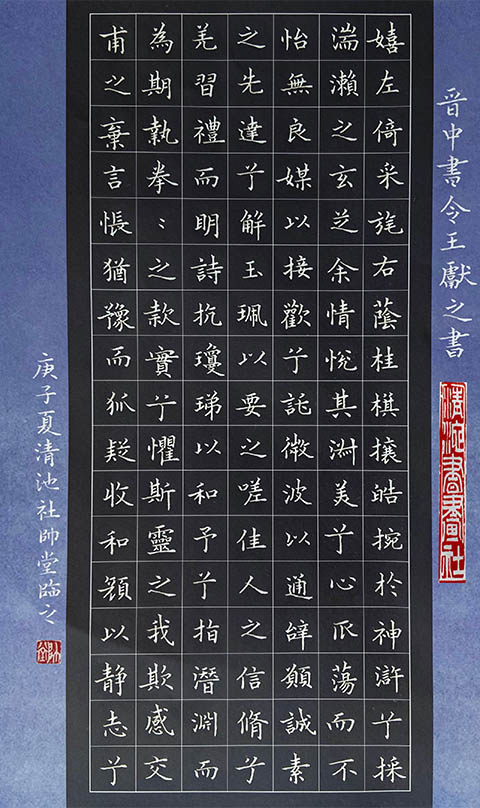 晋中書令王獻之書
清池書畫社
嬉左倚采旄右蔭桂旗攘皓捥於神滸兮採
湍瀨之玄芝余情悅其淑美兮心𠂢蕩而不
怡無良媒以接歡兮託微波以通辝願誠素
之先達兮解玉珮以要之嗟佳人之信脩兮
羌習禮而明詩抗瓊珶以和予兮指潛淵而
為期執拳〻之款實兮懼斯靈之我欺感交
甫之棄言悵猶豫而狐疑收和顏以静志兮
庚子夏清池社帥堂臨之